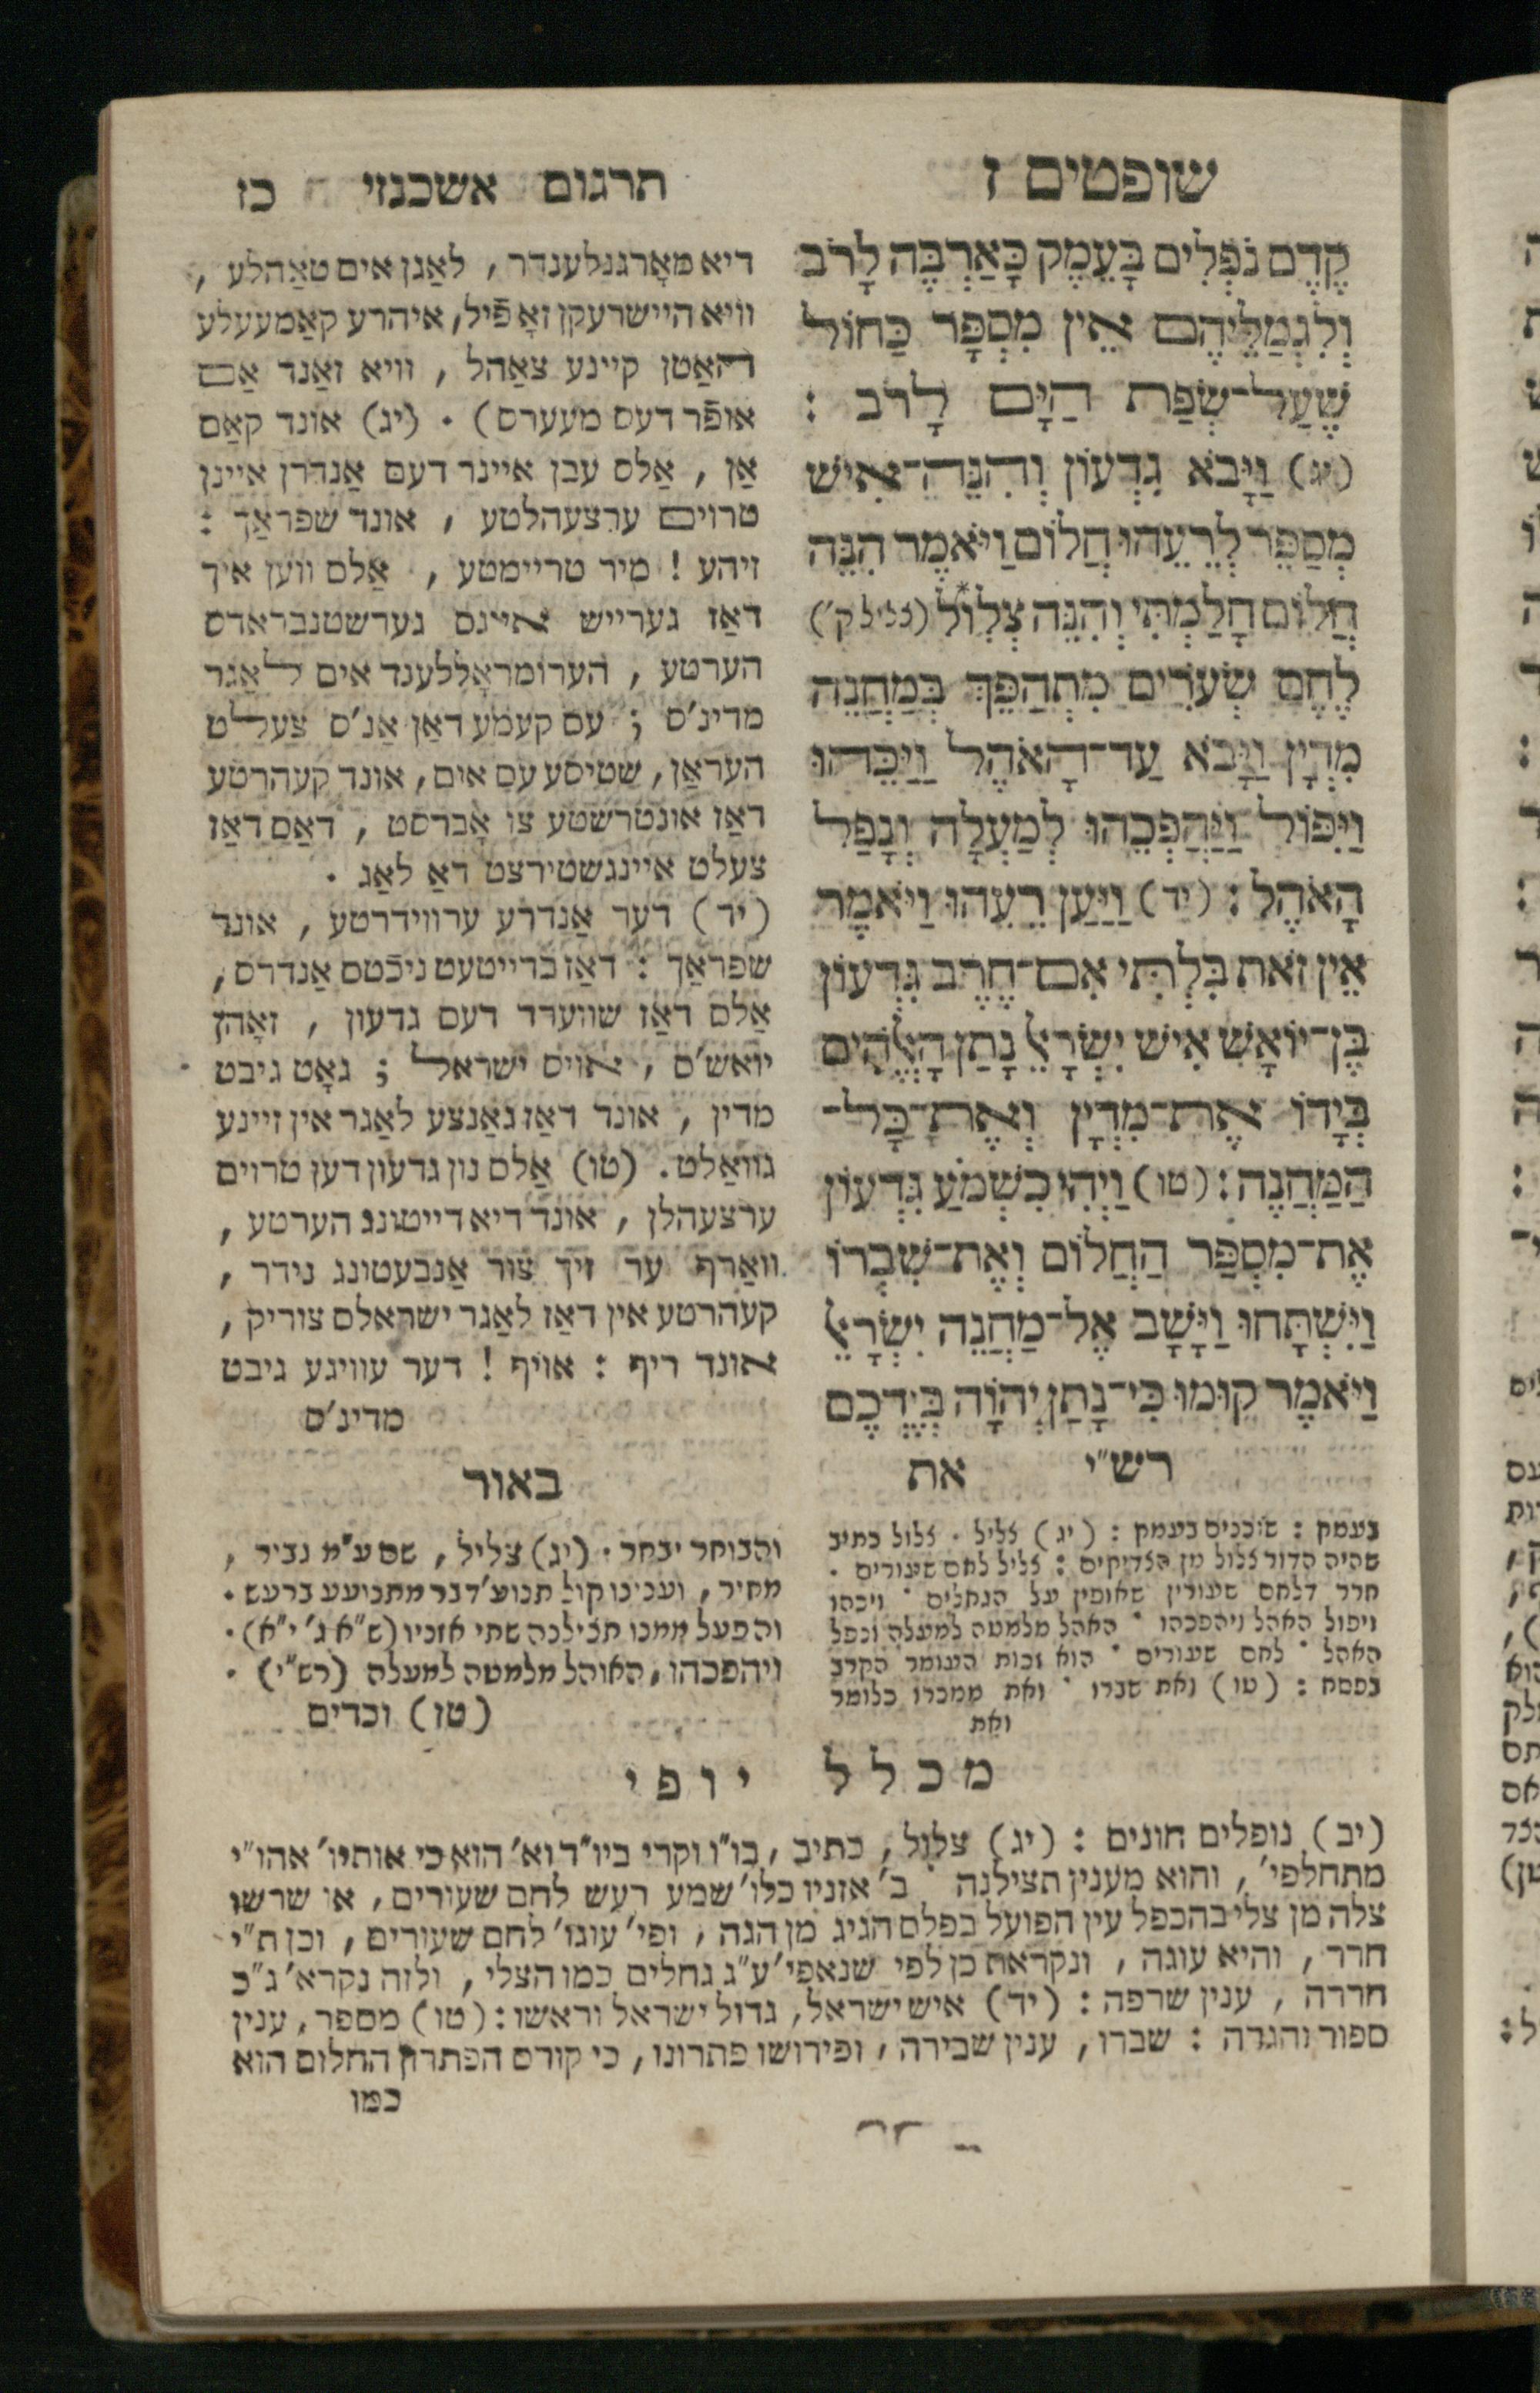 שופטים ז
קֶדֶם נֹפְלִים בָּעֵמֶק כָּאַרְבֶּה לָרֹב
וְלִגְמַלֵּיהֶם אֵין מִסְפָּר כַּחוֹל
שֶׁעַל־שְׂפַת הַיָּם לָרֹב :
(יג) וַיָּבֹא גִדְעוֹן וְהִנֵּה־אִישׁ
מְסַפֵּר לְרֵעֵהוּ חֲלוֹם וַיֹּאמֶר הִנֵּה
חֲלוֹם חָלַמְתִּי וְהִנֵּה צְלוֹל* (צליל ק')
לֶחֶם שְׂעֹרִים מִתְהַפֵּךְ בְּמַחֲנֵה
מִדְיָן וַיָּבֹא עַד־הָאֹהֶל וַיַּכֵּהוּ
וַיִּפּוֹל וַיַּהַפְכֵהוּ לְמַעְלָה וְנָפַל
הָאֹהֶל : (יד) וַיַּעַן רֵעֵהוּ וַיֹּאמֶר
אֵין זֹאת בִּלְתִּי אִם־חֶרֶב גִּדְעוֹן
בֶּן־יוֹאָשׁ אִישׁ יִשְׂרָאֵל נָתַן הָאֱלֹהִים
בְּיָדוֹ אֶת־מִדְיָן וְאֶת־כָּל־
הַמַּחֲנֶה : (טו) וַיְהִי כִשְׁמֹעַ גִּדְעוֹן
אֶת־מִסְפַּר הַחֲלוֹם וְאֶת־שִׁבְרוֹ
וַיִּשְׁתָּחוּ וַיָּשָׁב אֶל־מַחֲנֵה יִשְׂרָאֵל
וַיֹּאמֶר קוּמוּ כִּי־נָתַן יְהוָֹה בְּיֶדְכֶם
את
תרגום אשכנזי כז
דיא מאָרגנלענדר , לאַגן אים טאַהלע ,
וויא היישרעקן זאָ פֿיל, איהרע קאַמעעלע
האַטן קיינע צאַהל , וויא זאַנד אַם
אופֿר דעס מעערס) . (יג) אונד קאַם
אַן , אַלס עבן איינר דעם אַנדרן איינן
טרוים ערצעהלטע , אונד שפראַך :
זיהע ! מיר טריימטע , אַלס ווען איך
דאַז גערייש איינס גערשטנבראדס
הערטע , הערומראָללענד אים לאַגר
מדינ'ס ; עס קעמע דאַן אַנ'ס צעללט
העראַן, שטיסע עס אים, אונד קעהרטע
דאַז אונטרשטע צו אָברסט , דאַס דאַז
צעלט איינגשטירצט דאַ לאַג .
(יד) דער אַנדרע ערווידרטע , אונד
שפראַך : דאַז בדייטעט ניכֿטס אַנדרס,
אַלס דאַז שווערד דעס גדעון , זאָהן
יואש'ס , אויס ישראל ; גאָט גיבט
מדין , אונד דאַז גאַנצע לאַגר אין זיינע
גוואַלט. (טו) אַלס נון גדעון דען טרוים
ערצעהלן , אונד דיא דייטונג הערטע ,
וואַרף ער זיך צור אַנבעטונג נידר ,
קעהרטע אין דאַז לאַגר ישראלס צוריק ,
אונד ריף : אויף ! דער עוויגע גיבט
מדינ'ס
רש"י
בעמק : שוכנים בעמק : (יג) צליל . צלול כתיב
שהיה הדור צלול מן הצדיקים : צליל לחם שעורים .
חרר דלחם שעורין שאופין על הגחלים . ויכהו
ויפול האהל ויהפכהו . האהל מלמטה למעלה ונפל
האהל . לחם שעורים . הוא זכות העומר הקרב
בפסח : (טו) ואת שברו . ואת ממכרו כלומר
ואת
באור
והבוחר יבחר . (יג) צליל, שם ע"מ גביר ,
מחיר, וענינו קול תנוע' דבר מתנועע ברעש .
והפעל ממנו תצילנה שתי אזניו (ש"א ג' י"א) .
ויהפכהו, האוהל מלמטה למעלה (רש"י) .
(טז) וכדים
מכלל יופי
(יב) נופלים חונים : (יג) צלול, כתיב , בו"ו וקרי ביו"ד וא' הוא כי אותיו' אהו"י
מתחלפי' , והוא מענין תצילנה ב' אזניו כלו' שמע רעש לחם שעורים, או שרשו
צלה מן צלי בהכפל עין הפועל בפלס הגיג מן הגה , ופי' עוגו' לחם שעורים , וכן ת"י
חרר , והיא עוגה , ונקראת כן לפי שנאפי' ע"ג גחלים כמו הצלי , ולזה נקרא' ג"כ
חררה , ענין שרפה : (יד) איש ישראל, גדול ישראל וראשו : (טו) מספר, ענין
ספור והגדה : שברו , ענין שבירה , ופירושו פתרונו , כי קודם הפתרון החלום הוא
כמו